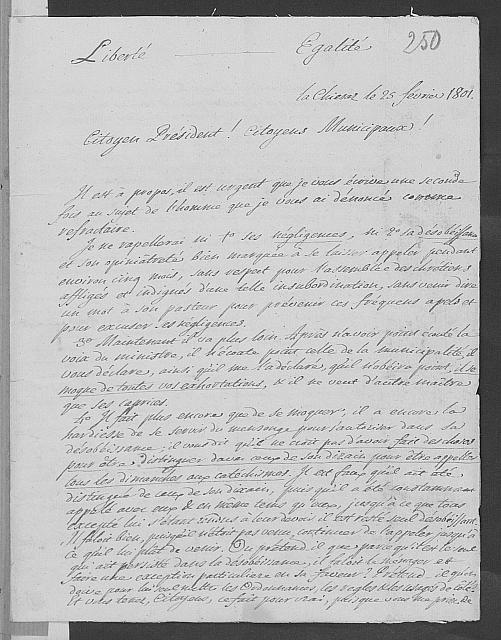 Liberté Egalité 250
la Chiesaz le 25 fevrier 1801.
Citoyen Président! Citoyens Municipaux!
Il est à propos, il est urgent que je vous écrive une seconde
fois au sujet de l'homme que je vous ai dénoncé comme
refractaire.
Je ne rappellerai ni 1o ses négligences, ni 2o sa désobéissance
et son opiniatreté bien marquée à se laisser appeler pendant
environ cinq mois, sans respect pour l'assemblée des chrétiens
affligés et indignés d'une telle insubordination, sans venir dire
un mot à son pasteur pour prévenir ces fréquens apels et
pour excuser ses négligences.
3o Maintenant il va plus loin. Après n'avoir point écouté la
voix du ministre, il n'écoute point celle de la municipalité, il
vous déclare, ainsi qu'il me l'a déclaré, qu'il n'obéira point, il se
moque de toutes vos exhortations, & il ne veut d'autre maitre
que ses caprices.
4o Il fait plus encore que de se moquer, il a encore la
hardiesse de se servir du mensonge pour l'autoriser dans sa
désobéissance: il vous dit qu'il ne croit pas d'avoir fait des choses
pour être distingué d'avec ceux de son dizain pour être appellé
tous les dimanches aux catéchismes. Il est faux qu'il ait été
distingué de ceux de son dizain, puis qu'il a été constamment
appelé avec eux & en même tems qu'eux, jusqu'à ce que tous
excepté lui s'étant rendus à leur devoir il est resté seul désobéissant.
Il faloit bien, puisqu'il n'étoit pas venu, continuer de l'appeler jusqu'à
ce qu'il lui plut de venir. Ou prétend il que parce qu'il est le seul
qui ait persisté dans la désobéissance, il faloit le ménager et
faire une exception particuliere en sa faveur? Prétend il qu'on
doive pour lui seul mettre les Ordonnances, les regles & les usages de côté?
Et vous tenez, Citoyens, ce fait pour vrai, puis que vous me priez de